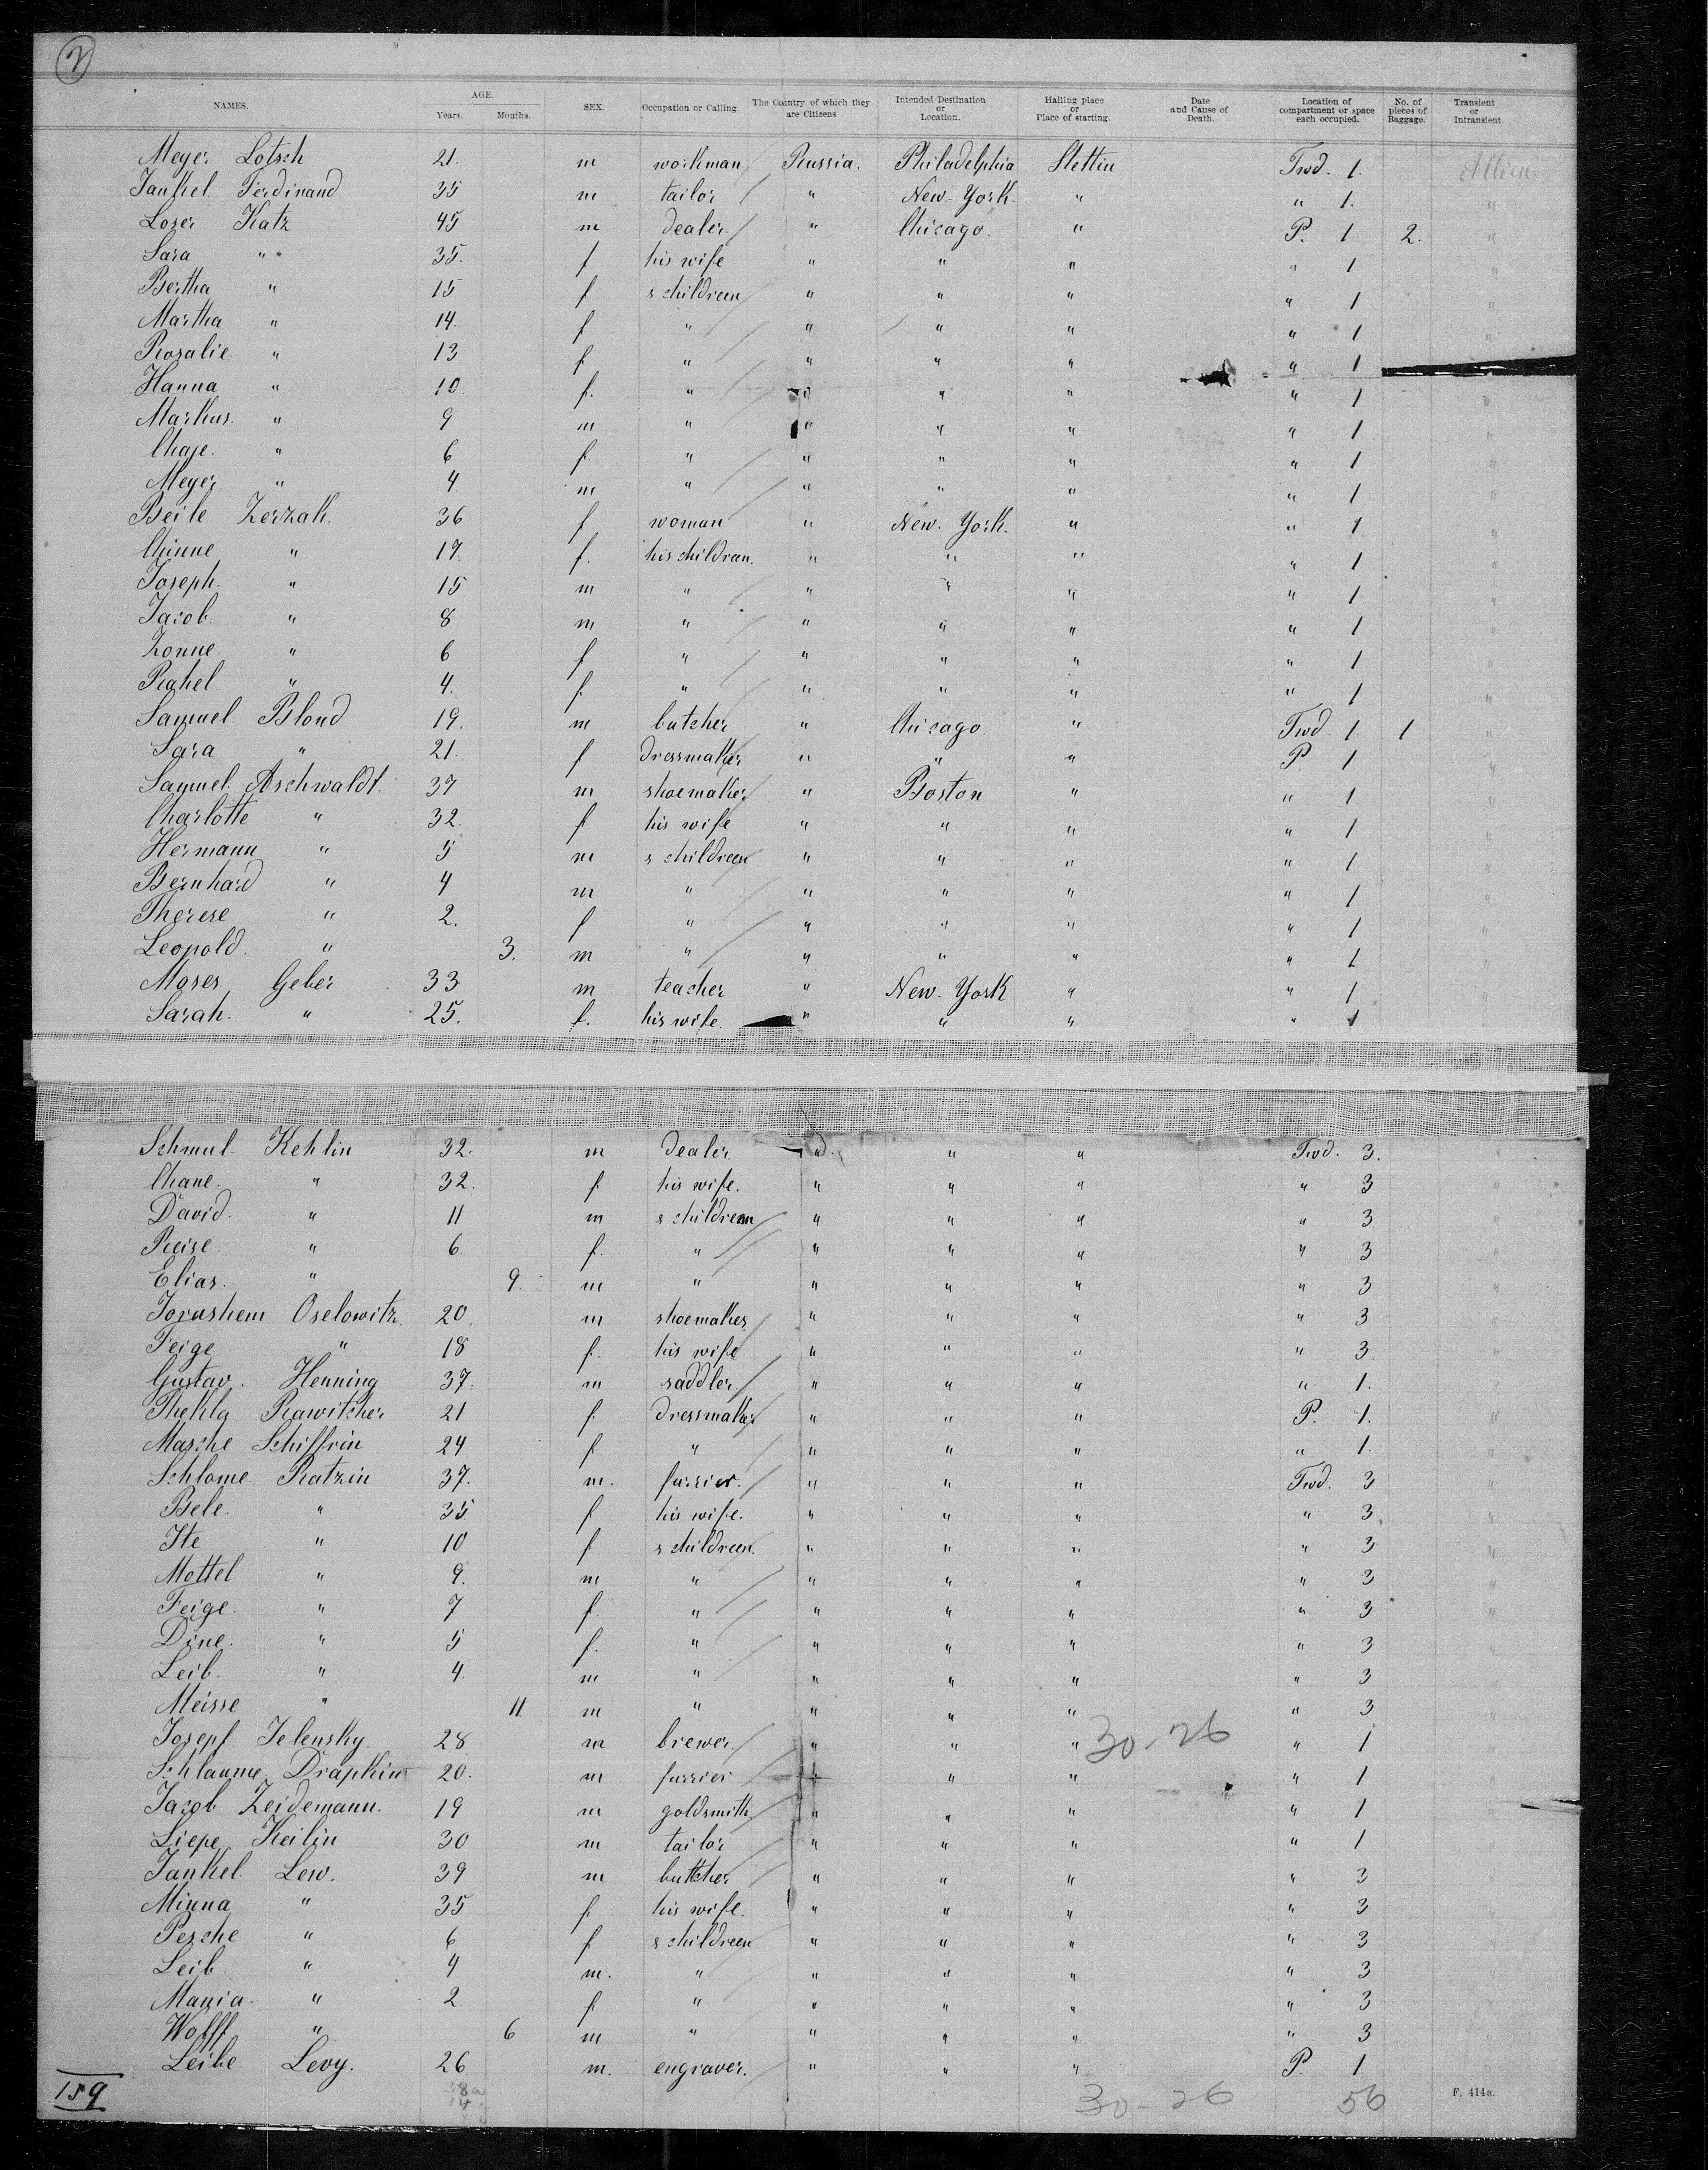 2
NAMES. AGE. Years. Months. SEX. Occupation or Calling. The Country of which they are Citizens Intended Destination or Location. Hailing place or Place of starting. Date and Cause of Death. Location of compartment or space each occupied. No. of pieces of Baggage. Transient or Intransient.
Meyer Lotsch 21. m workman Russia. Philadelphia Stettin Twd. 1.
Jankel Ferdinand 35 m tailor " New-York. " " 1. "
Loser Katz 45 m dealer " Chicago. " P. 1 2. "
Sara " 35. f his wife " " " " 1 "
Bertha " 15 f s children " " " " 1 "
Martha " 14. f " " " " " 1 "
Rosalie " 13 f " " " " " 1
Hanna " 10 f. " " " " " 1 "
Markus. " 9 m " " " " " 1 "
Chaje. " 6 f " " " " " 1 "
Meyer " 4 m " " " " " 1 "
Beile Zerzak. 36 f woman " New-York. " " 1 "
Chinne " 17. f. his children. " " " " 1 "
Joseph. " 15 m " " " " " 1 "
Jacob. " 8 m " " " " " 1 "
Zonne " 6 f " " " " " 1 "
Rahel " 4. f. " " " " " 1 "
Samuel Blond 19. m butcher " Chicago. " Twd. 1. 1 "
Sara " 21. f dressmaker " " " P. 1 "
Samuel Aschwaldt. 37 m shoemaker " Boston " " 1 "
Charlotte " 32. f his wife " " " " 1 "
Hermann " 5 m s children " " " " 1 "
Bernhard " 4 m " " " " " 1 "
Therese " 2. f " " " " " 1 "
Leopold. " 3. m " " " " " 1 "
Moses Geber 33 m teacher " New-York " " 1 "
Sarah. " 25. f. his wife. " " " " 1
Schmul Kehlin 32. m dealer " " " Twd. 3. "
Chane. " 32. f his wife. " " " " 3 "
David. " 11 m s children " " " " 3 "
Reise. " 6. f. " " " " " 3 "
Elias. " 9. m " " " " " 3 "
Oselowitz 20. m shoemaker " " " " 3 "
Feige " 18 f. his wife " " " " 3. "
Gustav. Henning 37. m saddler. " " " " 1. "
Thekla Rawitscher 21 f dressmaker " " " P. 1. "
Masche Schiffrin 24 f " " " " " 1. "
Schlome Ratzin 37. m. furrier. " " " Twd. 3 "
Bele. " 35 f his wife. " " " " 3 "
Ite " 10 f s children. " " " " 3 "
Mottel " 9. m " " " " " 3 "
Feige. " 7 f " " " " " 3 "
Dine. " 5 f. " " " " " 3 "
Leib. " 4. m " " " " " 3 "
Meisse " 11. m " " " " " 3 "
Josepf Jelensky. 28 m brewer. " " " 30-26 " 1 "
Schlaume Drapkin 20. m furrier " " " " 1 "
Jacob Zeidemann. 19 m goldsmith " " " " 1 "
Liepe Keilin 30 m tailor " " " " 1 "
Jankel Lew. 39 m buttcher " " " " 3 "
Minna " 35 f his wife. " " " " 3 "
Pesche " 6 f s children " " " " 3 "
Leib " 4 m. " " " " " 3 "
Mania. " 2 f " " " " " 3 "
Wolff " 6 m " " " " " 3 "
Leibe Levy. 26 m. engraver. " " " P. 1 "
159 30-26 56 F. 414a.